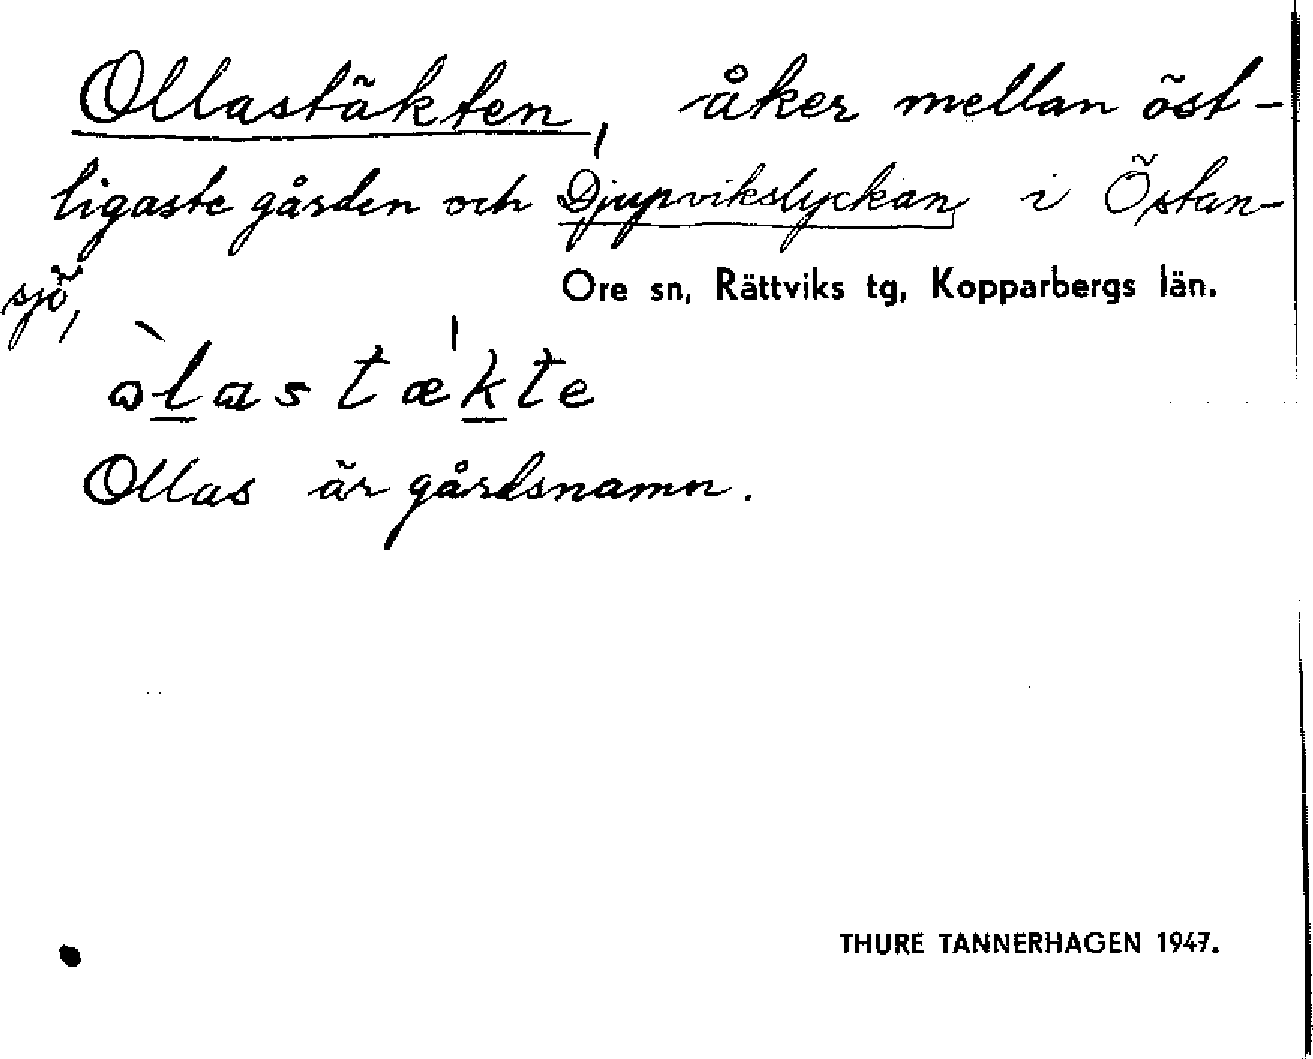 Ollastäkten, åker mellan öst-
ligaste gården och Djupvikslyckan i Östan-
sjö,
Ore sn, Rättviks tg, Kopparbergs län.
òlas tæ'kte
Ollas är gårdsnamn.
THURE TANNERHAGEN 1947.